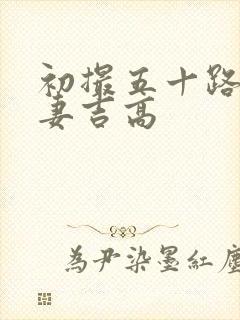 初撮五十路
妻吉高
為尹染墨紅塵